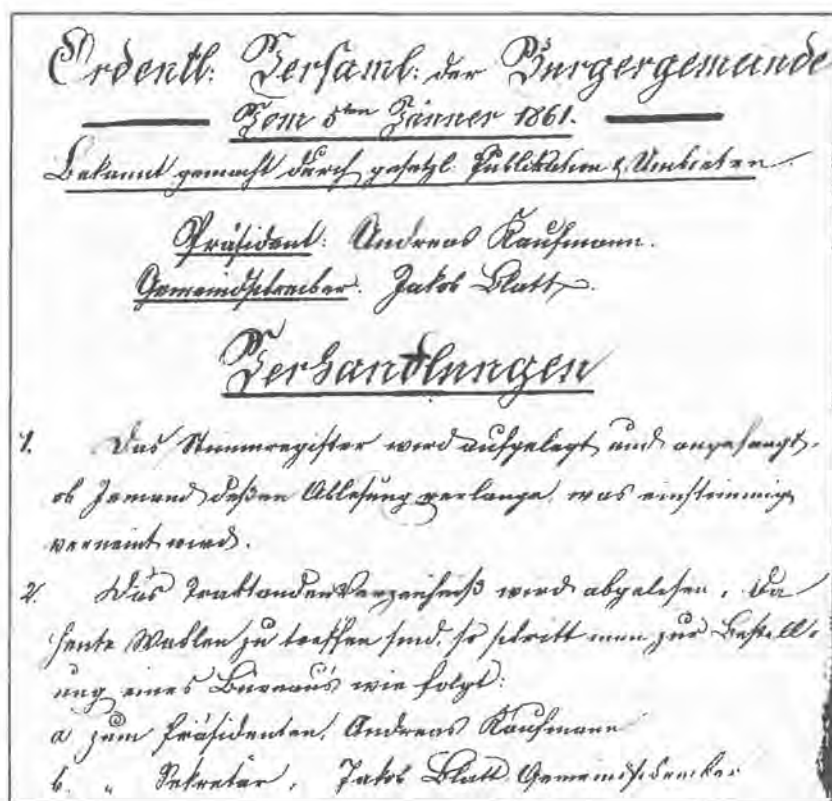 Ordentl: Versaml: der Burgergemeinde
Vom 5ten Jänner 1861.
Bekannt gemacht durch gesetzl. Publikation & Umbieten.
Präsident: Andreas Kaufmann.
Gemeindschreiber. Jakob Blatt.
Verhandlungen
1. Das Stimmregister wird aufgelegt und angefragt,
ob Jemand deßen Ablesung verlange, was einstimmig
verneint wird.
2. Das Traktandenverzeichniß wird abgelesen. Da
heute Wahlen zu treffen sind, so schritt man zur Bestell-
ung eines Büreau's wie folgt:
a zum Präsidenten, Andreas Kaufmann
b. " Sekretär, Jakob Blatt Gemeindschreiber